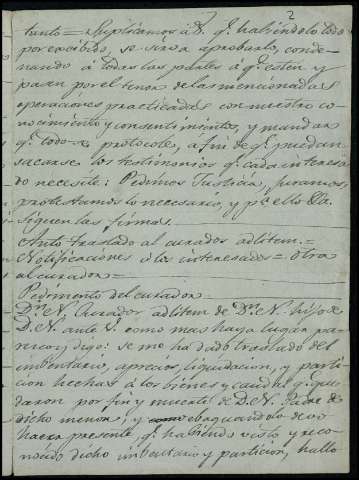 2
tanto = Suplicamos á V. q.e habiéndolo todo
por exibido, se sirva aprobarlo, conde-
nando á todas las partes á q.e esten y
pasen por el tenor de las mencionadas
operaciones practicadas con nuestro co-
nocimiento y consentimiento, y mandar
q.e todo se protocole, a fin de q.e puedan
sacarse los testimonios q.e cada interesa
do necesite: Pedimos Justicia, juramos,
protestamos lo necesario, y p.a ello &a.
Siguen las firmas.
Auto traslado al curador adlitem. =
Notificaciones á los interesados = otra
al curador =
Pedimento del curador
D.n N. Curador adlitem de D.n N. hijo de
D. N. ante V. como mas haya lugar pa-
rezco y digo: se me ha dado traslado del
imbentario, aprecio, liquidacion, y parti-
cion hechas á los bienes y caudal q.e que
daron por fin y muerte de D. N. Padre de
dicho menor; y evaquandolo devo
hacer presente, q.e habiendo visto y reco-
nocido dicho imbentario y particion, hallo